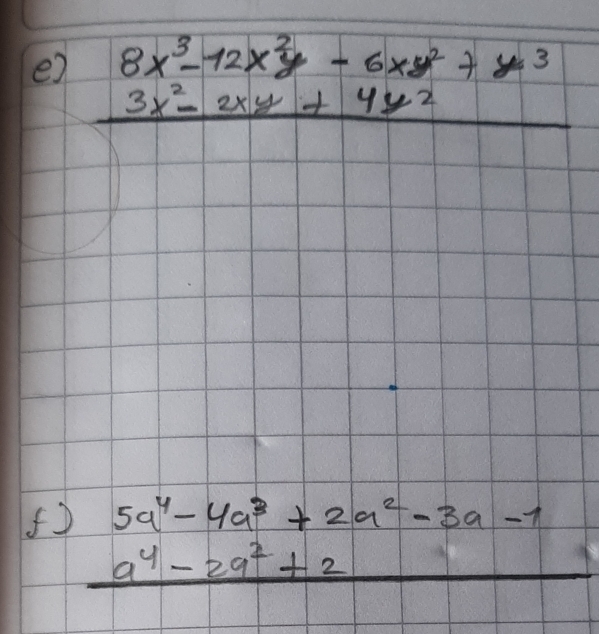 e) 8x³ - 12x²y - 6xy² + y³
3x² - 2xy + 4y²
f) 5a⁴ - 4a³ + 2a² - 3a - 1
a⁴ - 2a² + 2